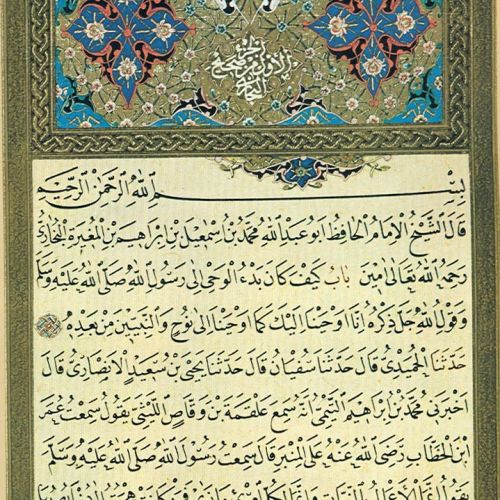 الجزء الأول من صحيح
البخاري
بسم الله الرحمن الرحيم
قال الشيخ الإمام الحافظ ابو عبد الله محمد بن اسمعيل بن ابراهيم بن المغيرة البخاري
رحمه الله تعالى امين باب كيف كان بدء الوحي الى رسول الله صلى الله عليه وسلم
وقول الله جل ذكره انا اوحينا اليك كما اوحينا الى نوح والنبيين من بعده
حدثنا الحميدي قال حدثنا سفيان قال حدثنا يحيى بن سعيد الانصاري قال
اخبرني محمد بن ابراهيم التيمي انه سمع علقمة بن وقاص الليثي يقول سمعت عمر
ابن الخطاب رضي الله عنه على المنبر قال سمعت رسول الله صلى الله عليه وسلم